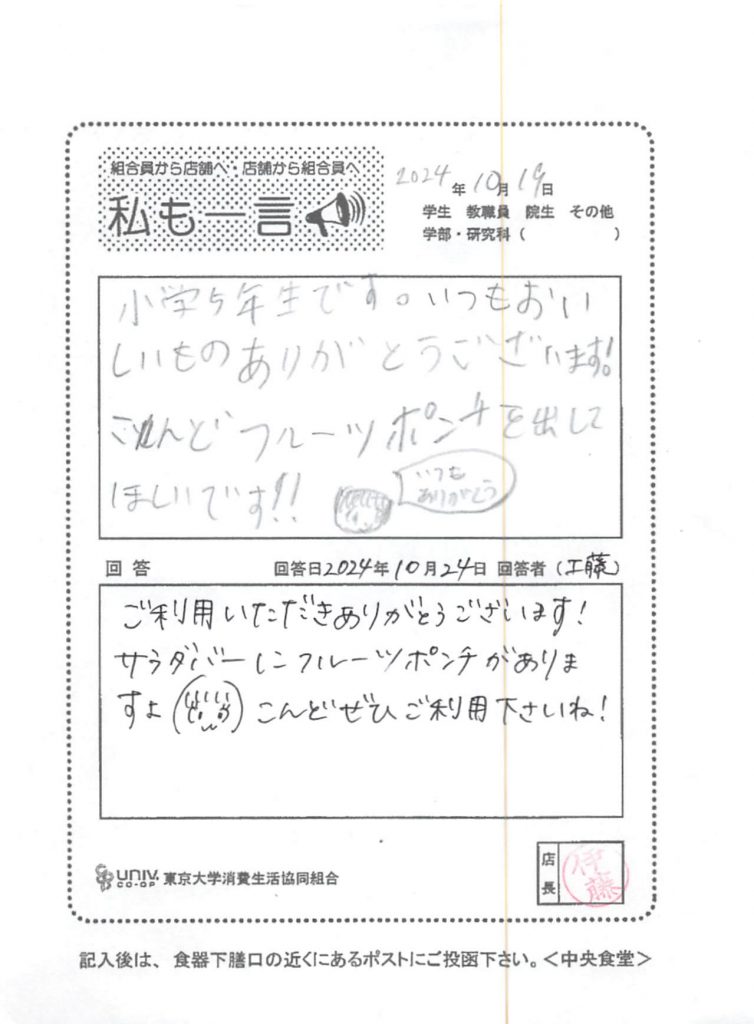 組合員から店舗へ・店舗から組合員へ
私も一言
2024年10月19日
学生 教職員 院生 その他
学部・研究科（ ）
小学5年生です。いつもおい
しいものありがとうございます!
こんどフルーツポンチを出して
ほしいです!!
いつも
ありがとう
回答 回答日2024年10月24日 回答者（工藤）
ご利用いただきありがとうございます!
サラダバーにフルーツポンチがありま
すよ こんどぜひご利用下さいね!
UNIV. CO-OP 東京大学消費生活協同組合
店長
伊藤
記入後は、食器下膳口の近くにあるポストにご投函下さい。＜中央食堂＞